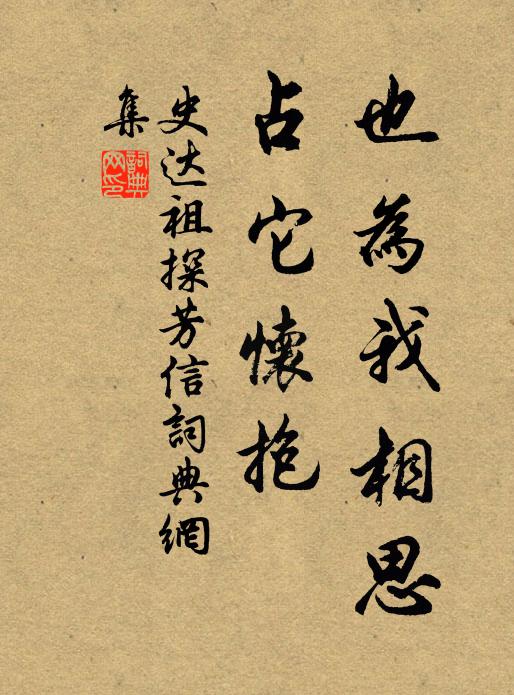 也為我相思
占它懷抱
史达祖探芳信詞典網
集
詞典
网印